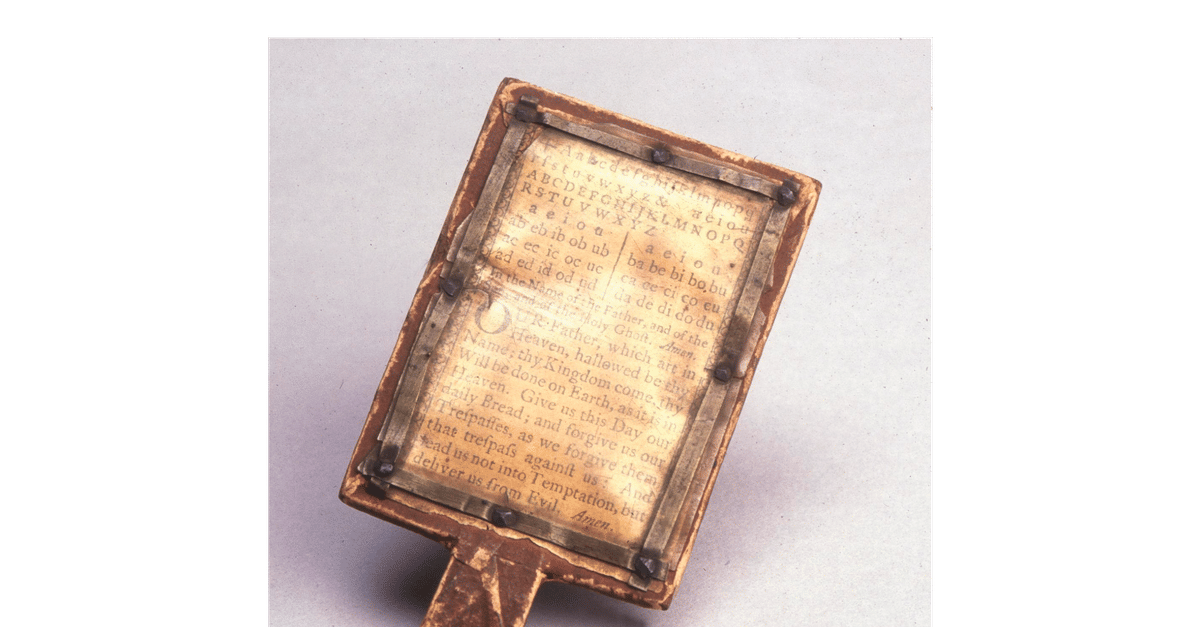 + Aabcdefghijklmnopq
rſstuvwxyz& aeiou
ABCDEFGHIJKLMNOPQ
RSTUVWXYZ
a e i o u a e i o u
ab eb ib ob ub ba be bi bo bu
ac ec ic oc uc ca ce ci co cu
ad ed id od ud da de di do du
In the Name of the Father, and of the
and of the Holy Ghoſt. Amen.
OUR Father, which art in
Heaven, hallowed be thy
Name; thy Kingdom come, thy
Will be done on Earth, as it is in
Heaven. Give us this Day our
daily Bread; and forgive us our
Treſpaſſes, as we forgive them
that treſpaſs againſt us: And
lead us not into Temptation, but
deliver us from Evil. Amen.